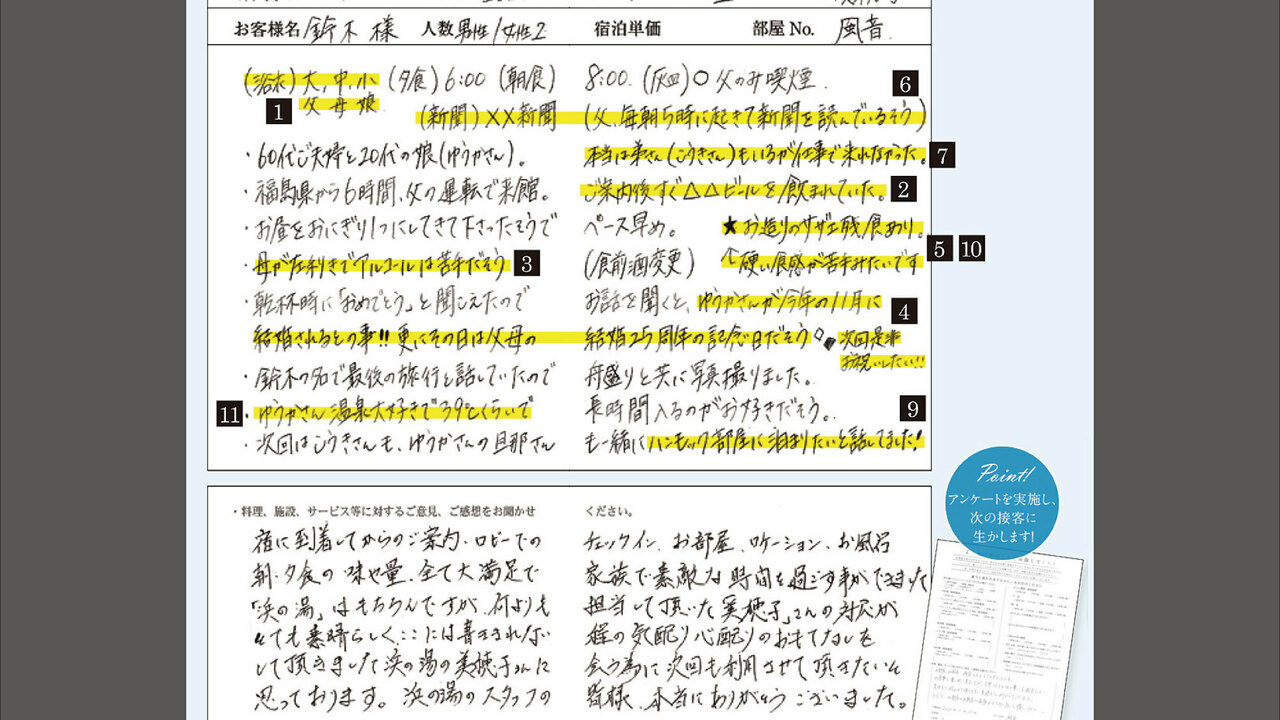 お客様名 鈴木 様 人数 男性1女性2 宿泊単価 部屋No. 風音
(浴衣) 大、中、小 (夕食) 6:00 (朝食) 8:00. (灰皿)○ 父のみ喫煙. 6
1 父 母 娘 (新聞) ××新聞 (父、毎朝5時に起きて新聞を読んでいるそう)
・60代ご夫婦と20代の娘(ゆうかさん)。 本当は弟さん(こうきさん)もいるが仕事で来れなかった。 7
・福島県から6時間、父の運転で来館。 ご案内後すぐ△△ビールを飲まれていた。 2
・お昼をおにぎり1つにしてきて下さったそうで ペース早め。 ★お造りのサザエ残/食あり。
・母が左利きでアルコールは苦手だそう 3 (食前酒変更) ↑硬い食感が苦手みたいです 5 10
・乾杯時に「おめでとう」と聞こえたので お話を聞くと、ゆうかさんが今年の11月に 4
結婚されるとの事!! 更にその日は父母の 結婚25周年の記念日だそう 次回是非
お祝いしたい!!
・鈴木の名で最後の旅行と話していたので 舟盛りと共に写真撮りました。
11 ・ゆうかさん温泉大好きで39℃くらいで 長時間入るのがお好きだそう。 9
・次回はこうきさんも、ゆうかさんの旦那さん も一緒にハンモック部屋に泊まりたいと話してました!
・料理、施設、サービス等に対するご意見、ご感想をお聞かせ ください。
宿に到着してからのご案内、ロビーでの チェックイン、お部屋、ロケーション、お風呂
朝・夕食の味や量、全て大満足で 家族で素敵な時間を過ごす事ができました
浜の湯はもちろんですが、何よりも 担当して頂いた実穂子さんの対応が
とても素晴らしく、ここには書ききれない 程の気配り心配りのおもてなしを
して頂きました 浜の湯の実穂子さんに 会う為に次回も利用させて頂きたいと
思っております。浜の湯のスタッフの 皆様、本当にありがとうございました。
Point!
アンケートを実施し、
次の接客に
生かします!